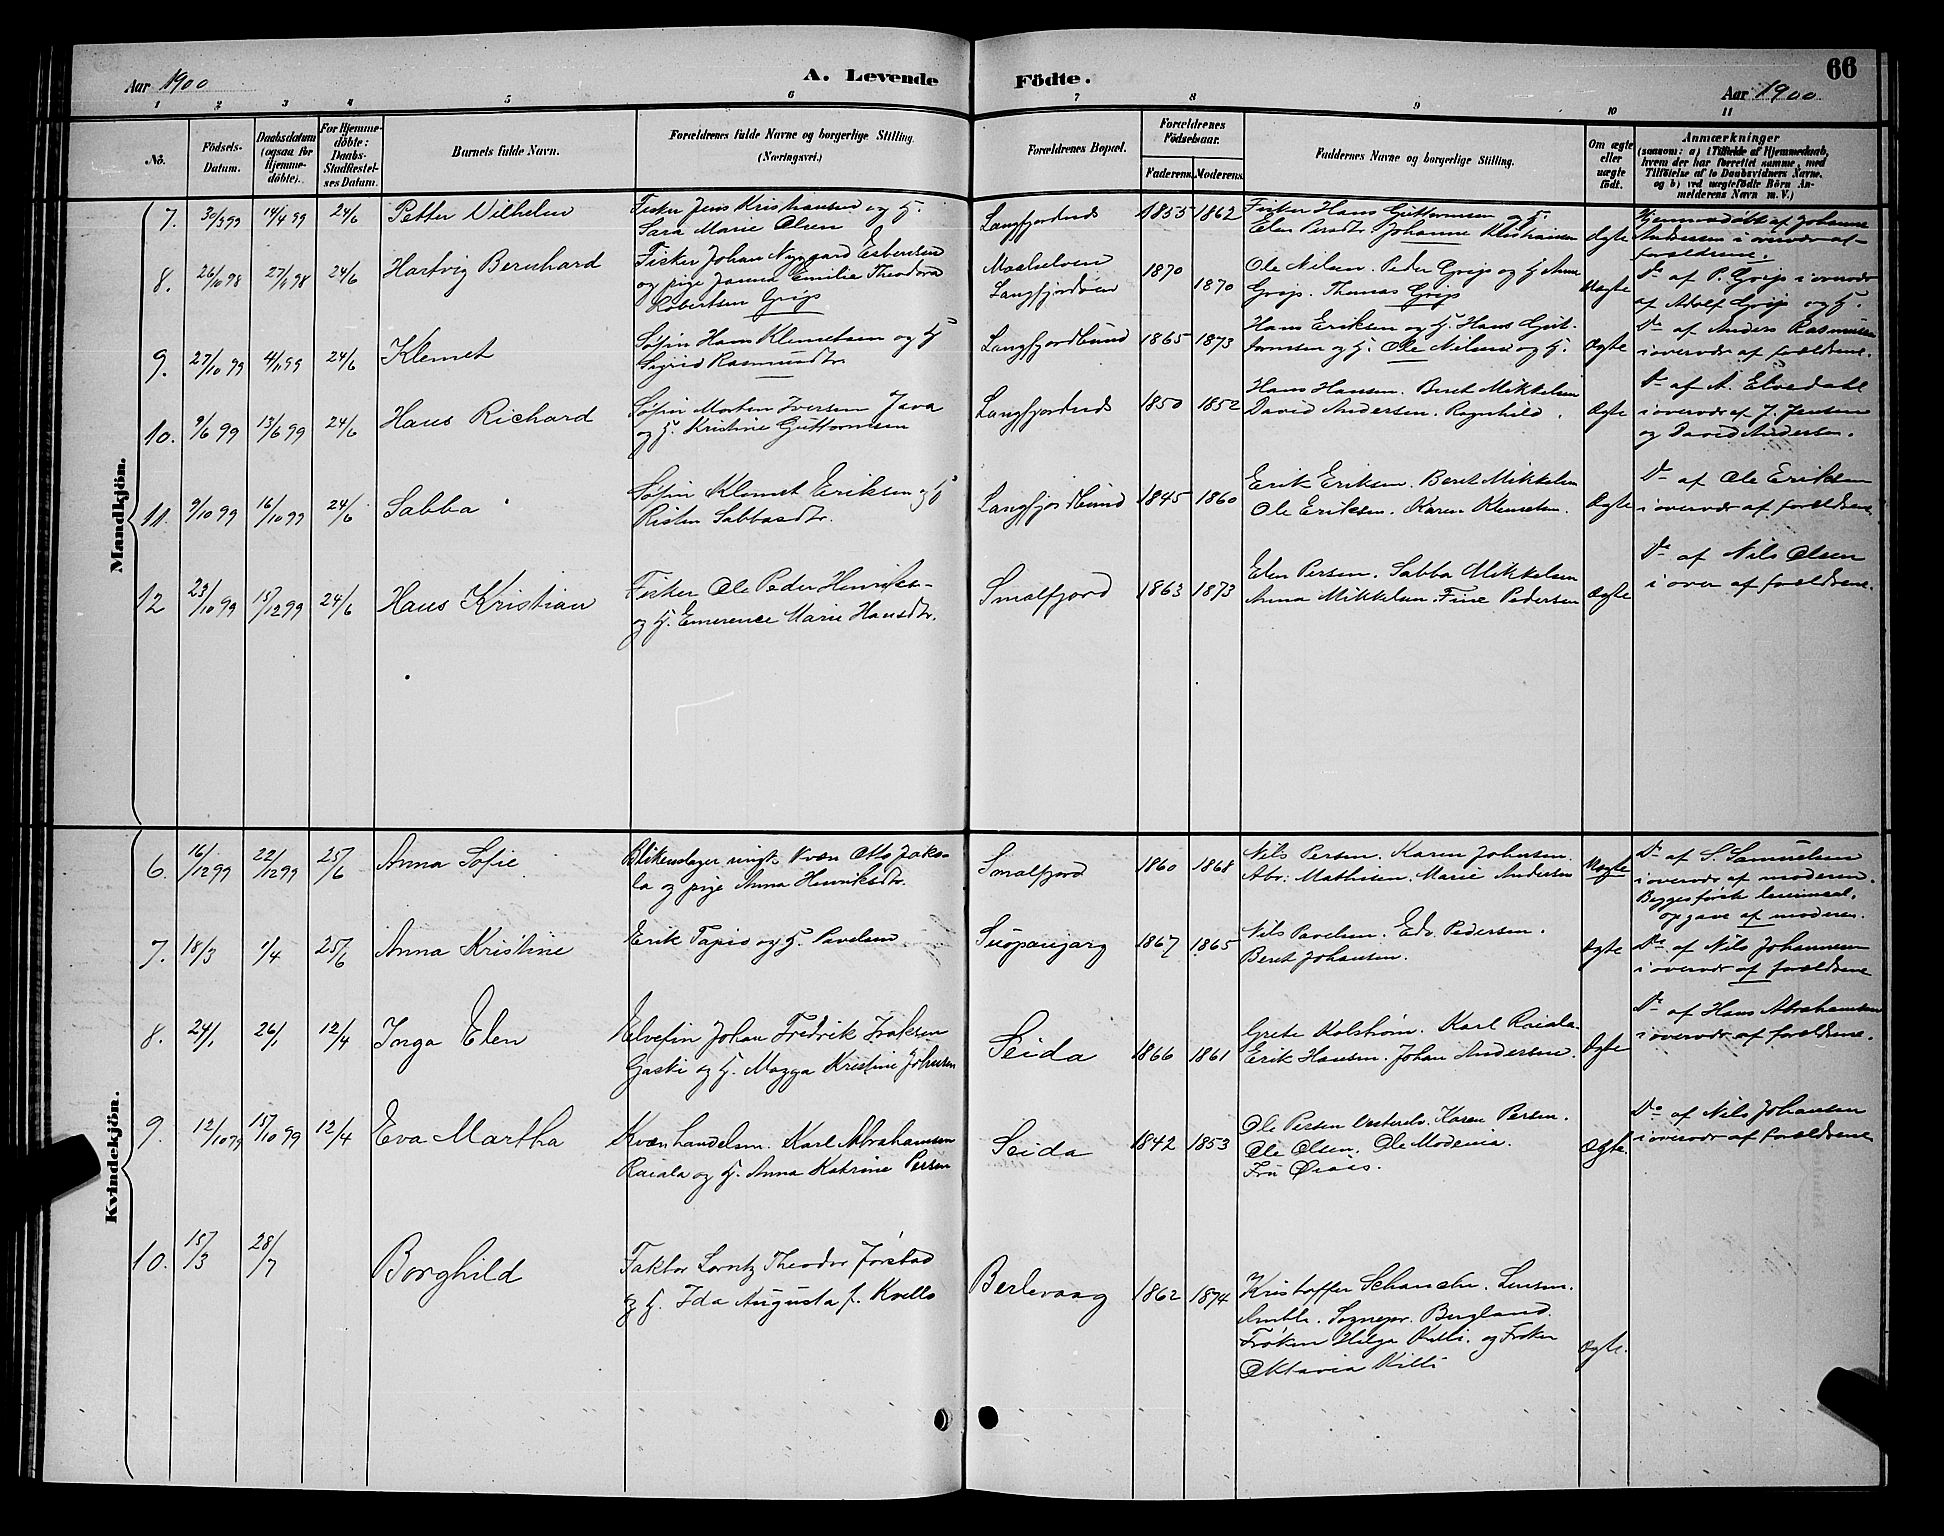 Aar 1900
A. Levende Födte.
66
Aar 1900
1 2 3 4 5 6 7 8 9 10 11
No.
Födsels-Datum.
Daabsdatum (ogsaa for Hjemme-döbte).
For Hjemme-döbte: Daabs-Stadfestel-ses Datum.
Barnets fulde Navn.
Forældrenes fulde Navne og borgerlige Stilling.
(Næringsvei.)
Forældrenes Bopæl.
Forældrenes Födselsaar.
Faderens. Moderens.
Faddernes Navne og borgerlige Stilling.
Om ægte eller uægte födt.
Anmærkninger
(saasom: a) i Tilfælde af Hjemmedaab,
hvem der har forrettet samme, med
Tilföielse af to Daabsvidners Navne,
og b) ved uægtefödte Börn An-
melderens Navn m. V.)
Mandkjön.
7. 30/3 99 14/4 99 24/6 Petter Vilhelm
Fisker Jens Kristiansen og H.
Sara Marie Olsen
Langfjordnes 1855 1862
Fisker Hans Guttormsen og H.
Elen Persdtr Johanne Kristiansen
Ægte
Hjemmedöbt af Johanne
Andersen i overvær af
forældrene.
8. 26/10 98 27/1 98 24/6 Hartvig Bernhard
Fisker Johan Nygaard Esbensen
og pige Janna Emilie Theodora
Lobertsen Grip
Maalselven
Langfjordveien
1870 1870
Ole Nilsen. Peder Grip og H. Anne
Grip. Thomas Grip
Uægte
Do af P. Grip i overvær
af Adolf Grip og H.
9. 27/10 99 4/11 99 24/6 Klemet
Søfin Hans Klemetsen og H
Sigrid Rasmusdtr.
Langfjordbund 1865 1873
Hans Eriksen og H. Hans Gut-
tormsen og H. Ole Nilsen og H.
Ægte
Do af Anders Rasmussen
i overvær af forældrene.
10. 9/6 99 13/6 99 24/6 Hans Richard
Søfin Morten Iversen Java
og H. Kristine Guttormsen
Langfjordnes 1850 1852
Hans Hansen. Beret Mikkelsen
David Andersen. Ragnhild.
Ægte
Do af A. Elvedahl
i overvær af J. Jensen
og David Andersen.
11. 9/10 99 16/10 99 24/6 Sabba
Søfin Klemet Eriksen og H
Risten Sabbasdtr.
Langfjordbund 1845 1860
Erik Eriksen. Beret Mikkelsen
Ole Eriksen. Karen Klemetsen.
Ægte
Do af Ole Eriksen
i overvær af forældrene.
12 23/10 99 15/12 99 24/6 Hans Kristian
Fisker Ole Peder Henriks-
og H. Emerence Marie Hansdtr.
Smalfjord 1863 1873
Elen Persen. Sabba Mikkelsen
Anna Mikkelsen. Fine Pedersen
Ægte
Do af Nils Olsen
i over af forældrene.
Kvindekjön.
6. 16/12 99 22/12 99 25/6 Anna Sofie
Blikenslager ungk. Kvæn Otto Jako-
la og pige Anna Henriksdtr.
Smalfjord 1860 1868
Nils Persen. Karen Johnsen.
Abr: Mathisen. Marie Andersen
Uægte
Do af S. Samuelsen
i overvær af moderen.
Begges første leiermaal,
opgave af moderen.
7. 18/3 1/4 25/6 Anna Kristine
Erik Tapio og H. Pavelsen
Suopanjarg 1867 1865
Nils Pavelsen. Edv. Pedersen.
Beret Johansen.
Ægte
Do af Nils Johannesen
i overvær af forældrene
8. 24/1 26/1 12/4 Inga Elen
Elvefin Johan Fredrik Isaksen
Gaski og H. Magga Kristine Johnsen
Seida 1866 1861
Grete Kolstrøm. Karl Raiala.
Erik Hansen. Johan Andersen.
Ægte
Do af Hans Abrahamsen
i overvær af forældrene.
9. 12/10 99 15/10 99 12/4 Eva Martha
Kvæn handelsm. Karl Abrahamsen
Raiala og H. Anna Katrine Persen
Seida 1842 1853
Ole Persen. Karen Persen.
Ole Olsen. Ole Modenia.
Fru
Ægte.
Do af Nils Johansen
i overvær af forældrene
10. 15/3 28/7 Borghild
Faktor Lorntz Theodor Jørstad
og H. Ida Augusta f. Kvello
Berlevaag 1862 1874
Kristoffer Schanche. Lensm.
Amble. Sognepr. Bergland.
Frøken Helga Killi. og Frøken
Oktavia Killi
Ægte.